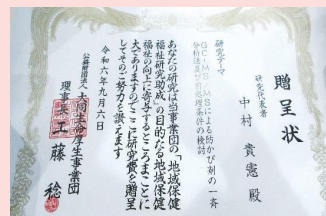 贈呈状
研究代表者
中村貴憲殿
研究テーマ
GC-MS/MSによる防かび剤の一斉
分析法及び前処理条件の検討
あなたの研究は当事業団の「地域保健
福祉研究助成」の目的たる地域保健
福祉の向上に寄与するところまことに
大でありますのでここに研究費を贈呈
してそのご努力を讃えます
令和六年九月六日
公益財団法人大同生命厚生事業団
理事長工藤稔